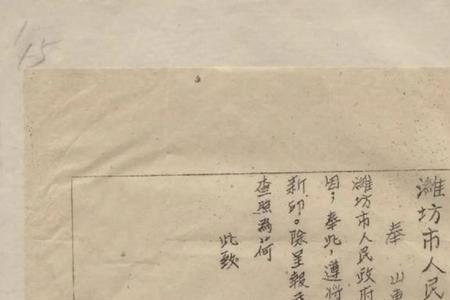 15
潍坊市人民
奉 山東
潍坊市人民政府
因；奉此，遵将
新印。除呈報
查照為荷
此致